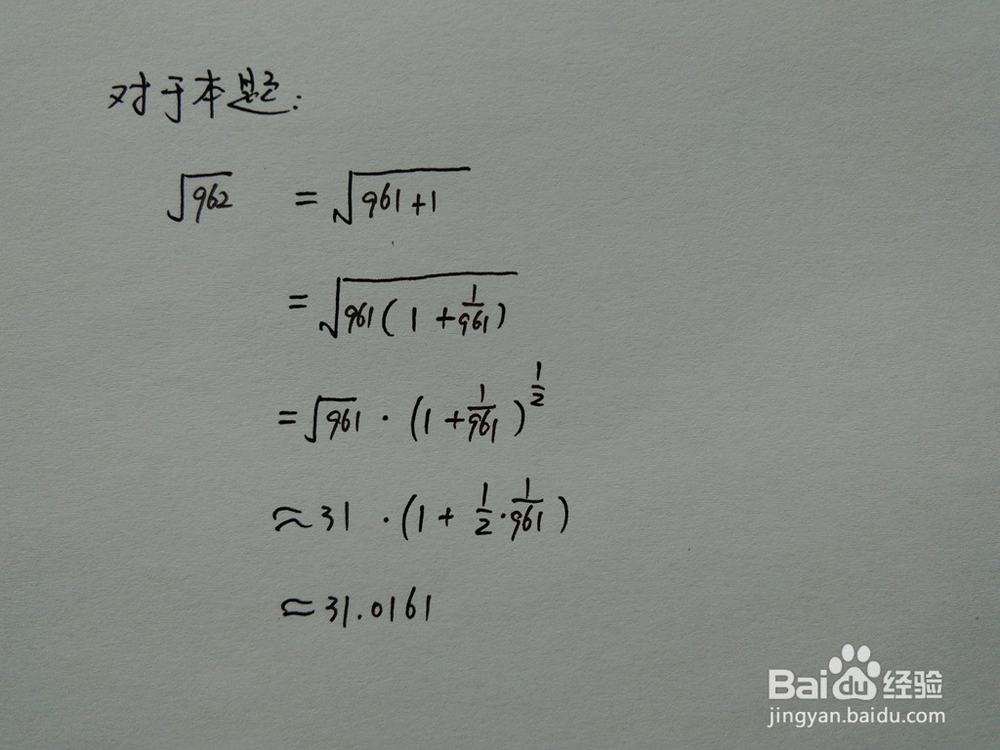 对于本题:
√962 = √(961+1)
= √(961(1+1/961))
= √961 · (1+1/961)^(1/2)
≈ 31 · (1+1/2·1/961)
≈ 31.0161
Baidu经验
jingyan.baidu.com